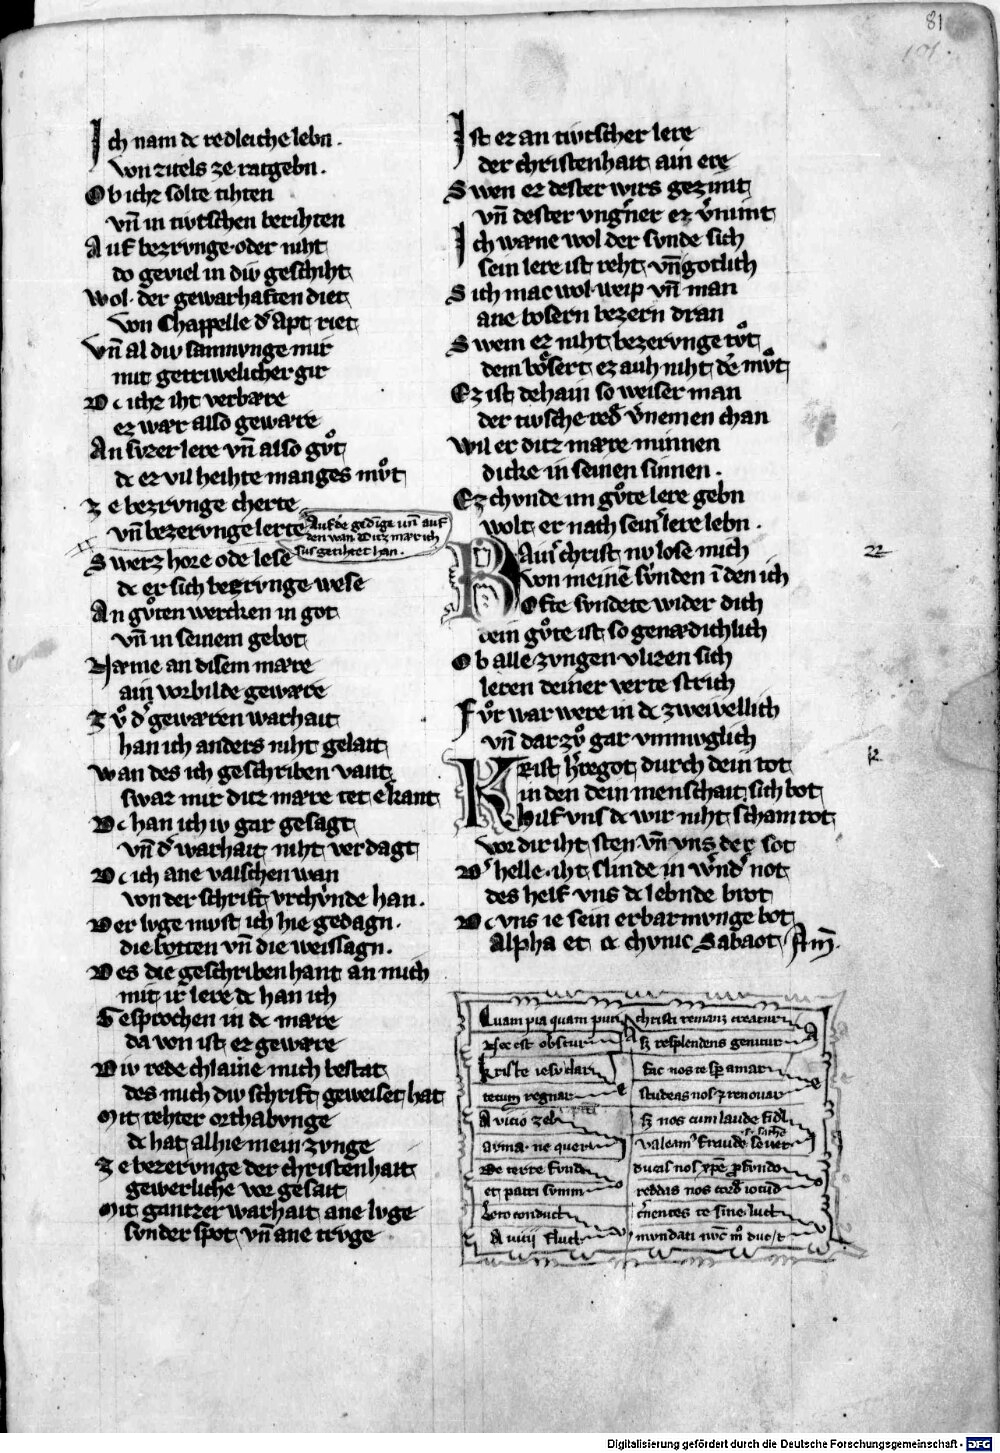 81
Ich nam dc redleiche lebn.
von zitels ze ratgebn.
Ob ichz solte tihten
vn̄ in tivtschen berihten
Auf bezrvnge oder niht
do geviel in div geschiht
wol der gewarhaften diet
von Chappelle d' apt riet
vn̄ al div samnvnge mir
mit getriwelicher gir
Dc ichz iht verbære
ez wær also gewære
An svzer lere vn̄ also gvͦt
dc ez vil lihte manges mvͦt
Ze bezrvnge cherte
vn̄ bezervnge lerte
Auf de gedige vn̄ auf
den wan ditz mær ich
sus getihtet han.
Swerz hore ode lese
dc er sich bezrvnge wese
An gvͦten wercken in got
vn̄ in seinem gebot
Næme an disem mære
ain vorbilde gewære
Zvͦ d' gewæren warhait
han ich anders niht gelait
wan des ich geschriben vant
swaz mir ditz mære tet erkant
Dc han ich iv gar gesagt
vn̄ d' warhait niht verdagt
Dc ich ane valschen wan
von der schrift vrchvnde han.
Der lvge mvst ich hie gedagn.
die botten vn̄ die weissagn.
Des die geschriben hant an mich
mit ir lere dc han ich
Gesprochen in dc mære
da von ist ez gewære
Div rede chlaine mich bestat
des mich div schrift geweiset hat
Mit rehter orthabvnge
dc hat alhie mein zvnge
Ze bezervnge der christenhait
gewerliche vor gesait
Mit gantzer warhait ane lvge
svnder spot vn̄ ane trvge
Ist ez an tivtscher lere
der christenhait ain ere
Swen ez dester wirs gezimt
vn̄ dester vngn̄er ez v'nimt
Ich wæne wol der svnde sich
sein lere ist reht vn̄ gotlich
Sich mac wol weip vn̄ man
ane bosern bezern dran
Swem ez niht bezervnge tvͦt
dem bosert ez auh niht de mvͦt
Ez ist dehain so weiser man
der tivsche red v'nemen chan
wil er ditz mære minnen
dicke in seinen sinnen.
Ez chvnde im gvͦte lere gebn
wolt er nach sein' lere lebn.
Rain' christ nv lose mich
von meinē svnden ī den ich
Ofte svndete wider dich
dein gvͦte ist so genædichlich
Ob alle zvngen vlizen sich
leren deiner verte strich
Fvͦr war were in dc zweivellich
vn̄ dar zvͦ gar vnmvglich
Krist h'regot durch dein tot
in den dein menschait sich bot
Hilf vns dc wir niht scham rot
vor dir iht sten vn̄ vns der sot
D' helle iht slinde in w'nd' not
des helf vns dc lebnde brot
Dc vns ie sein erbarmvnge bot
Alpha et o chvnic Sabaot Am̄.
Quam pia quam puri christi remanz creatur
Hoc est obscur h' resplendens genitur
Kriste iesv clari fac nos te sp amar
tecum regnar studeas nos 7 renovar
A vicio zeli h' nos cum laude fideli
arma ne queri valeam' fraude
De terre fundo ducas nos xp̄e profundo
et patri summo reddas nos corde iocūdo
Loto conductu m̄entes te sine luctu
A vitii fluctu mvndati
Digitalisierung gefördert durch die Deutsche Forschungsgemeinschaft - DFG